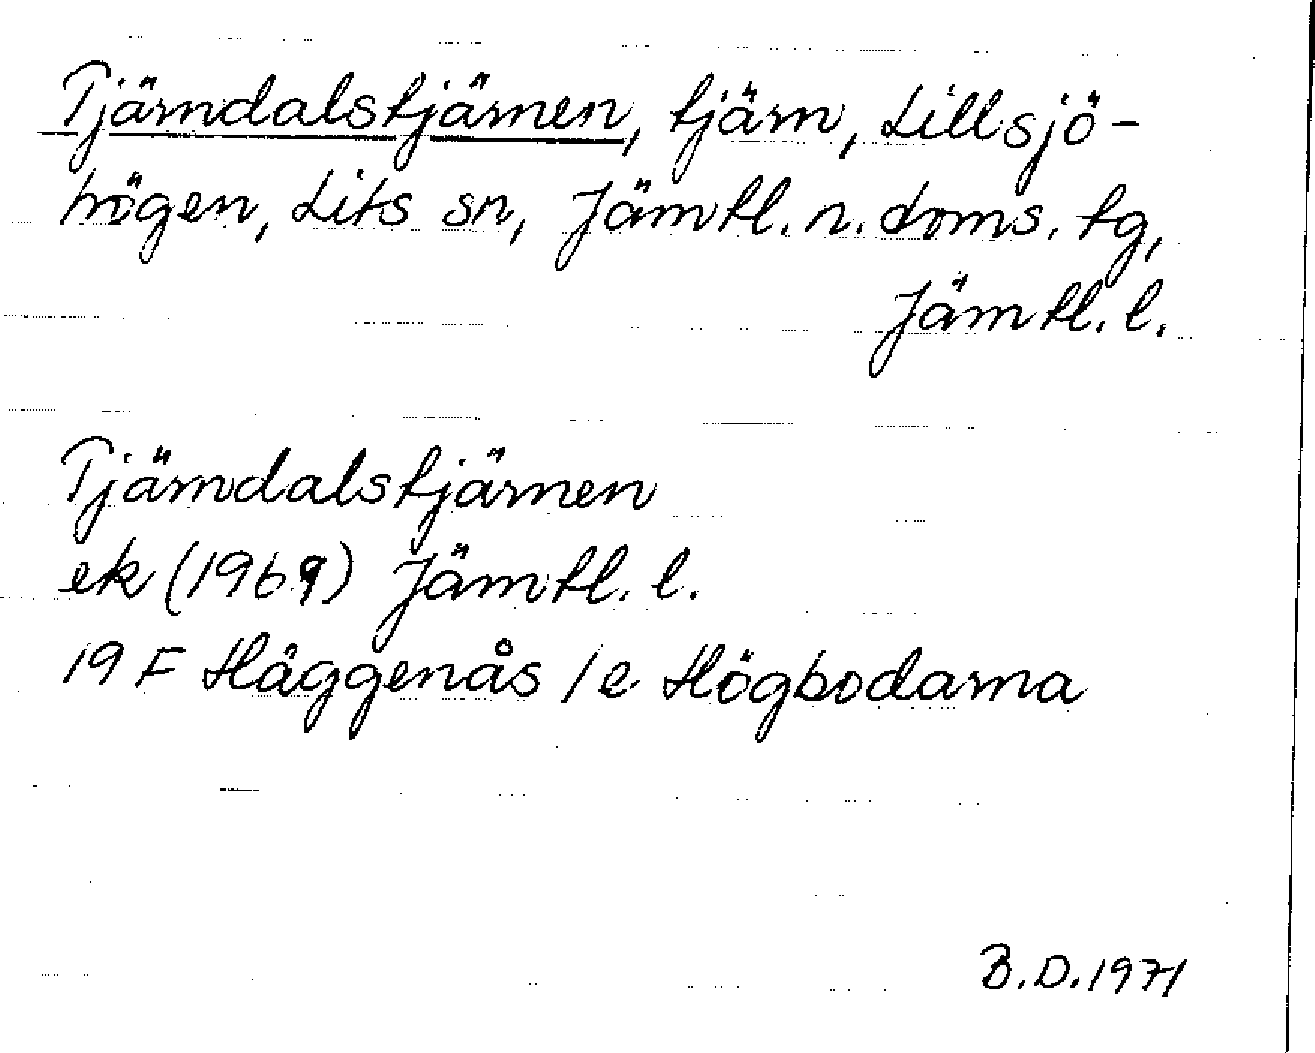 Tjärndalstjärnen, tjärn, Lillsjö-
högen, Lits sn, Jämtl. n. doms. tg,
Jämtl. l.
Tjärndalstjärnen
ek (1969) Jämtl. l.
19 F Häggenås / e Högbodarna
B.D. 1971